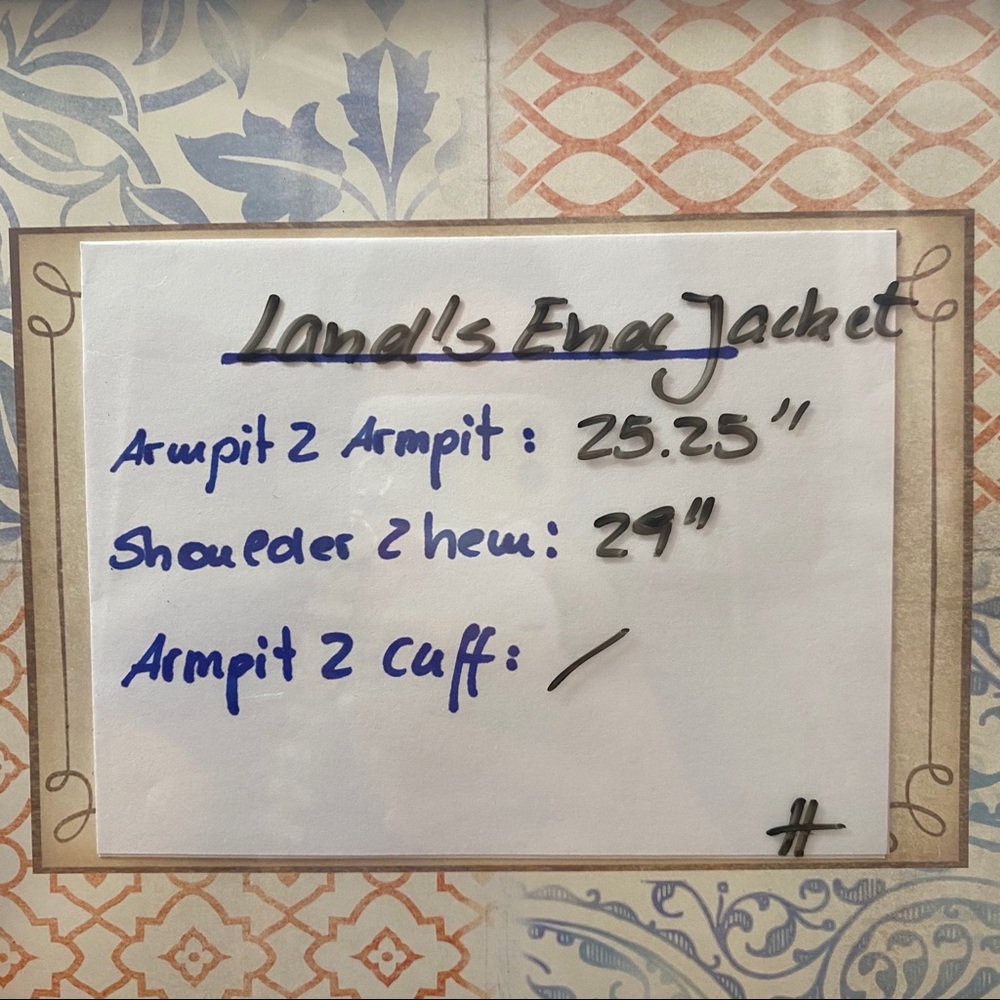 Land's End Jacket
Armpit 2 Armpit: 25.25"
Shoulder 2 hem: 29"
Armpit 2 Cuff: /
#